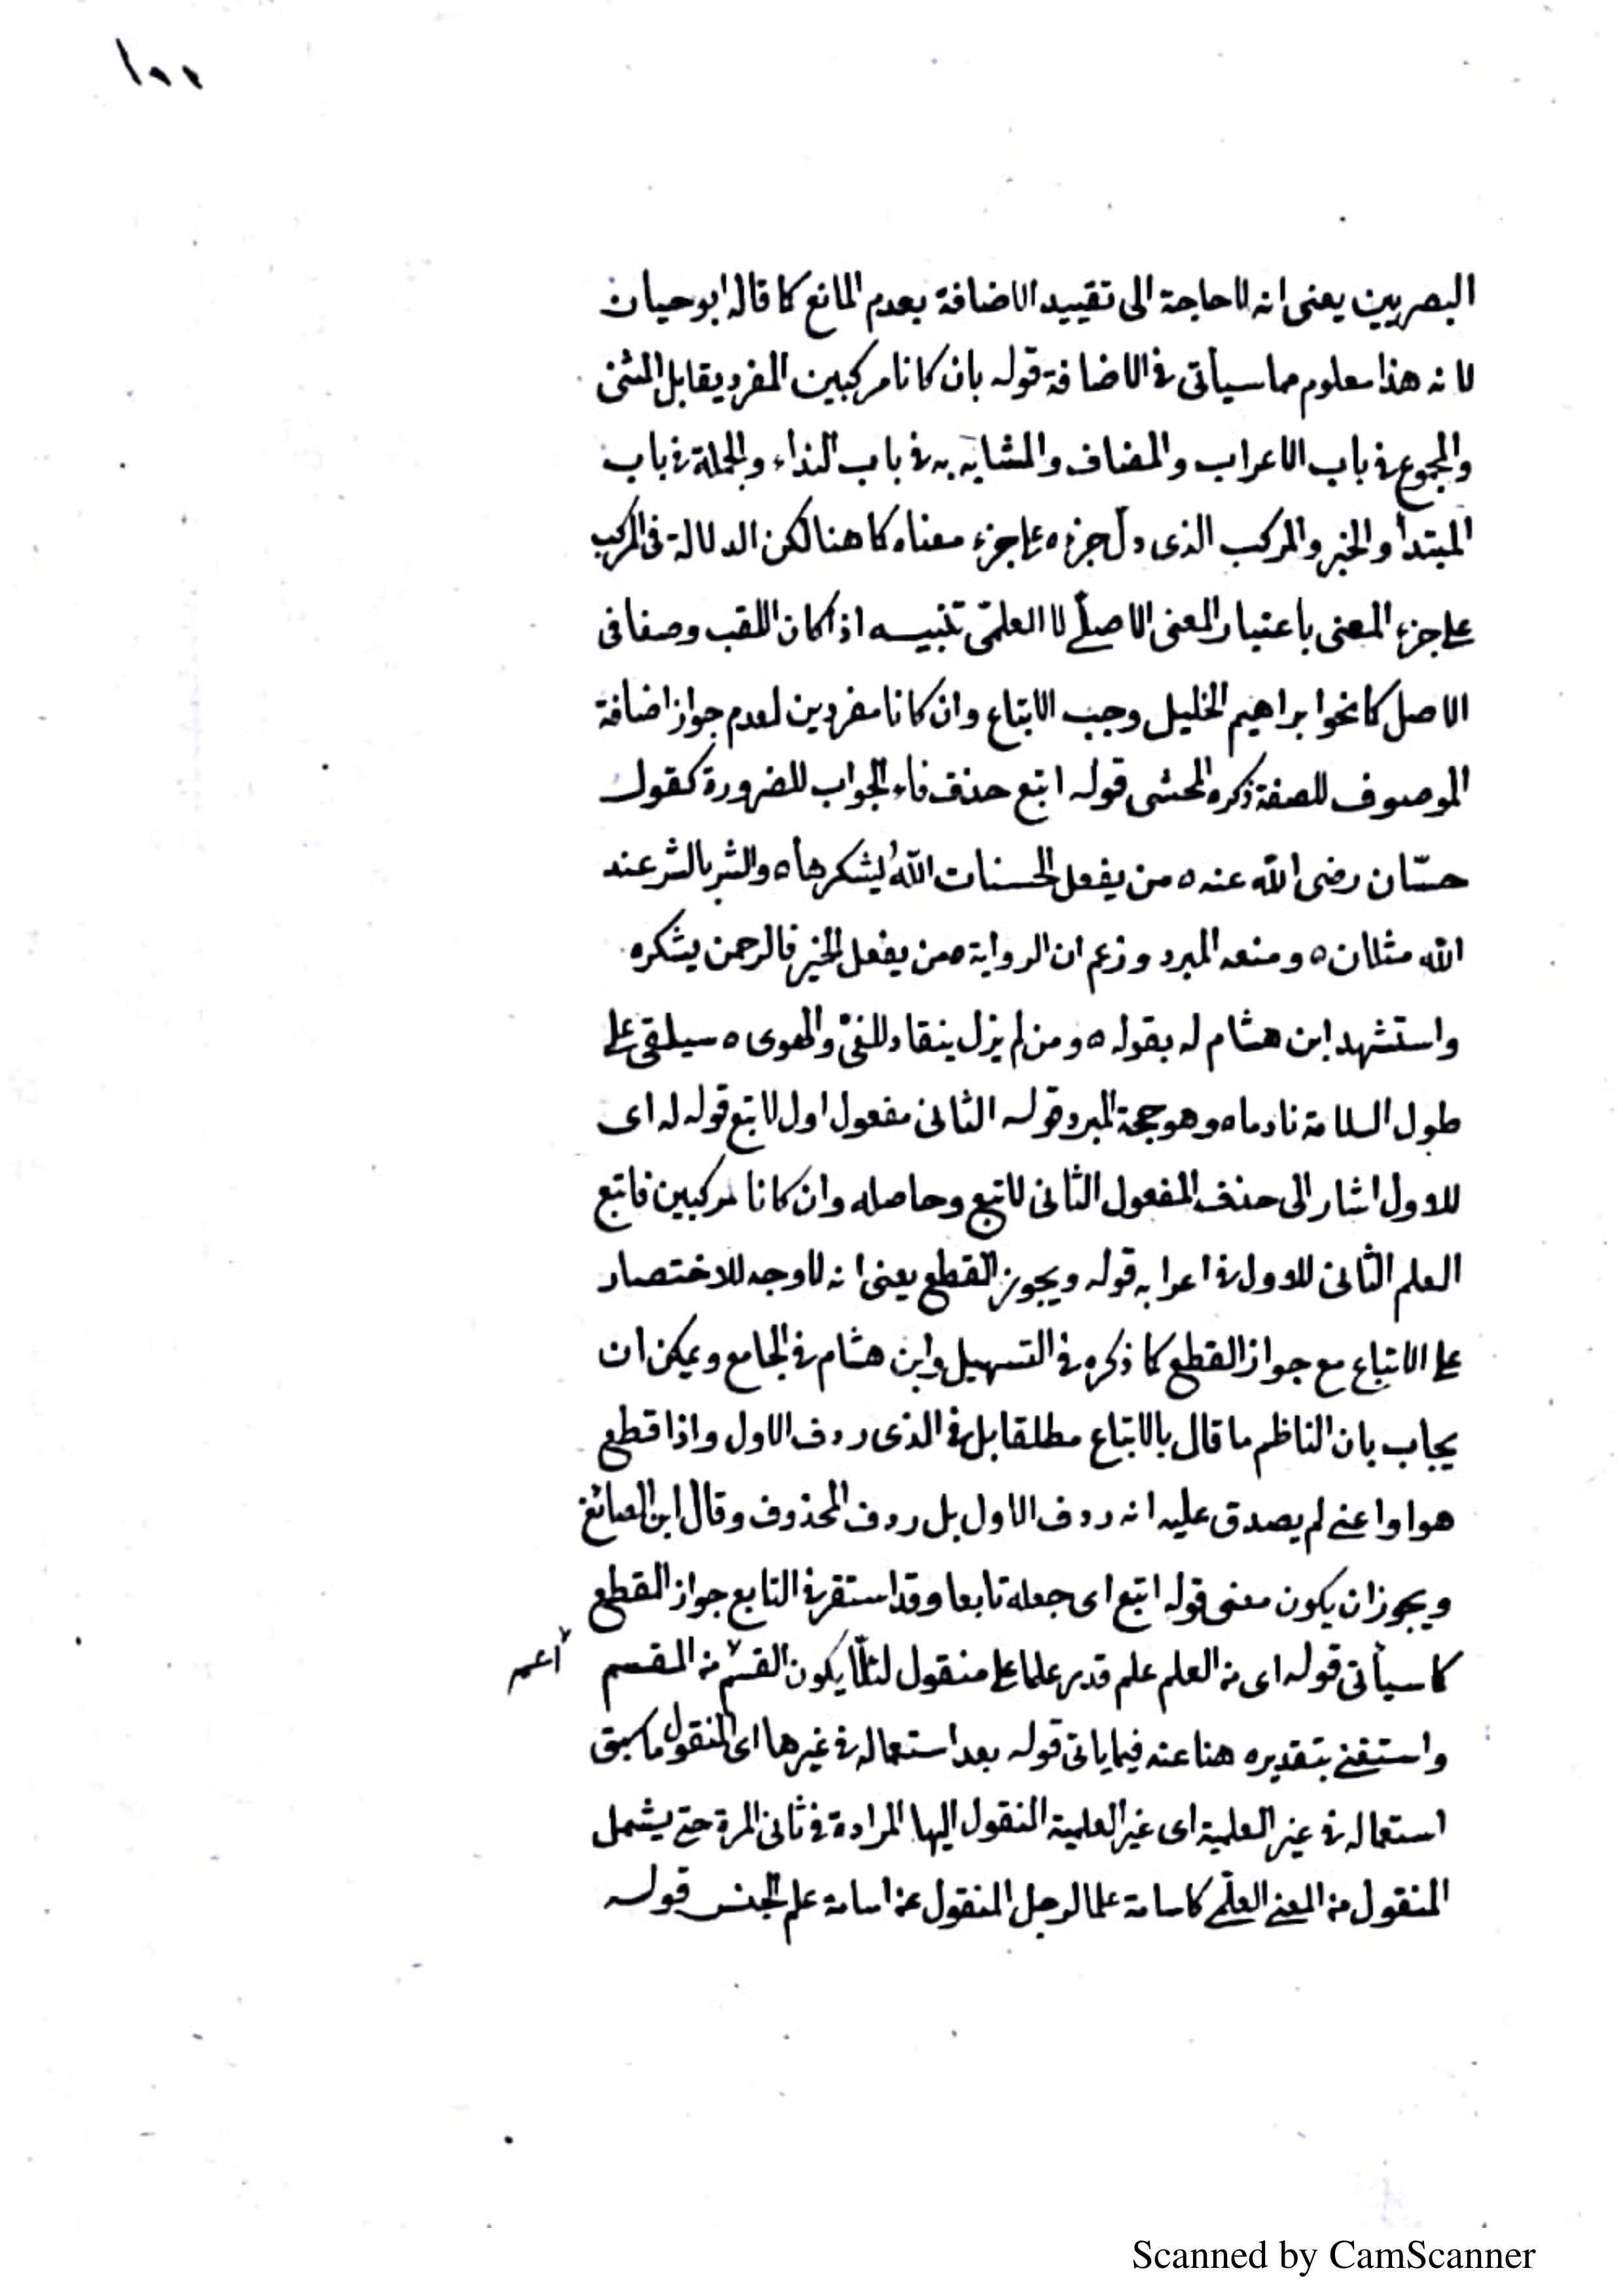 ١٠٠
البصريين يعنى انه لا حاجة الى تقييد الاضافة بعدم المانع كما قاله ابو حيان
لانه هذا معلوم مما سيأتى فى الاضافة قوله بان كانا مركبين المفرد يقابل المثنى
والمجموع فى باب الاعراب والمضاف والمشابه به فى باب النداء والجملة فى باب
المبتدأ والخبر والمركب الذى دلّ جزءه على جزء معناه كما هنا لكن الدلالة فى المركب
على جزء المعنى باعتبار المعنى الاصلّى لا العلمىّ تنبيه اذا كان اللقب وصفا فى
الاصل كما نحوا براهيم الخليل وجب الاتباع وان كانا مفردين لعدم جواز اضافة
الموصوف للصفة ذكره المحشى قوله اتبع حذف فاء الجواب للضرورة كقول
حسّان رضى الله عنه ه من يفعل الحسنات اللهُ يشكرها ه والشر بالشر عند
الله مثلان ه ومنعه المبرد وزعم ان الرواية من يفعل الخير فالرحمن يشكره
واستشهد ابن هشام له بقوله ه ومن لم يزل ينقاد للغىّ والهوى ه سيلقى على
طول السلامة نادما ه وهو حجة المبرد قوله الثانى مفعول اول لاتبع قوله له اى
للاول اشار الى حذف المفعول الثانى لاتبع وحاصله وان كانا مركبين فاتبع
العلم الثانى للاول فى اعرابه قوله ويجوز القطع يعنى انه لا وجه للاختصار
على الاتباع مع جواز القطع كما ذكره فى التسهيل وابن هشام فى الجامع ويمكن ان
يجاب بان الناظم ما قال بالاتباع مطلقا بل فى الذى ردف الاول واذا قطع
هوا واعنى لم يصدق عليه انه ردف الاول بل ردف المحذوف وقال ابن الصائغ
ويجوز ان يكون معنى قوله اتبع اى جعله تابعا وقد استقر فى التابع جواز القطع
كما سيأتى قوله اى من العلم علم قدير علما على منقول لئلّا يكون القسم من المقسم اعم
واستغنى بتقديره هنا عنه فيما ياتى قوله بعد استعماله فى غيرها اى المنقول ما سبق
استعماله فى غير العلمية اى غير العلمية المنقول اليها المرادة فى ثانى المرة حتى يشمل
المنقول من المعنى العلمّى كاسامة علما لرجل المنقول عن اسامة علم الجنس قوله
Scanned by CamScanner